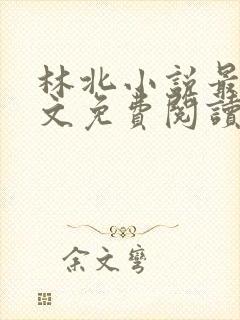 林北小説最
文免費閱讀
余文彎